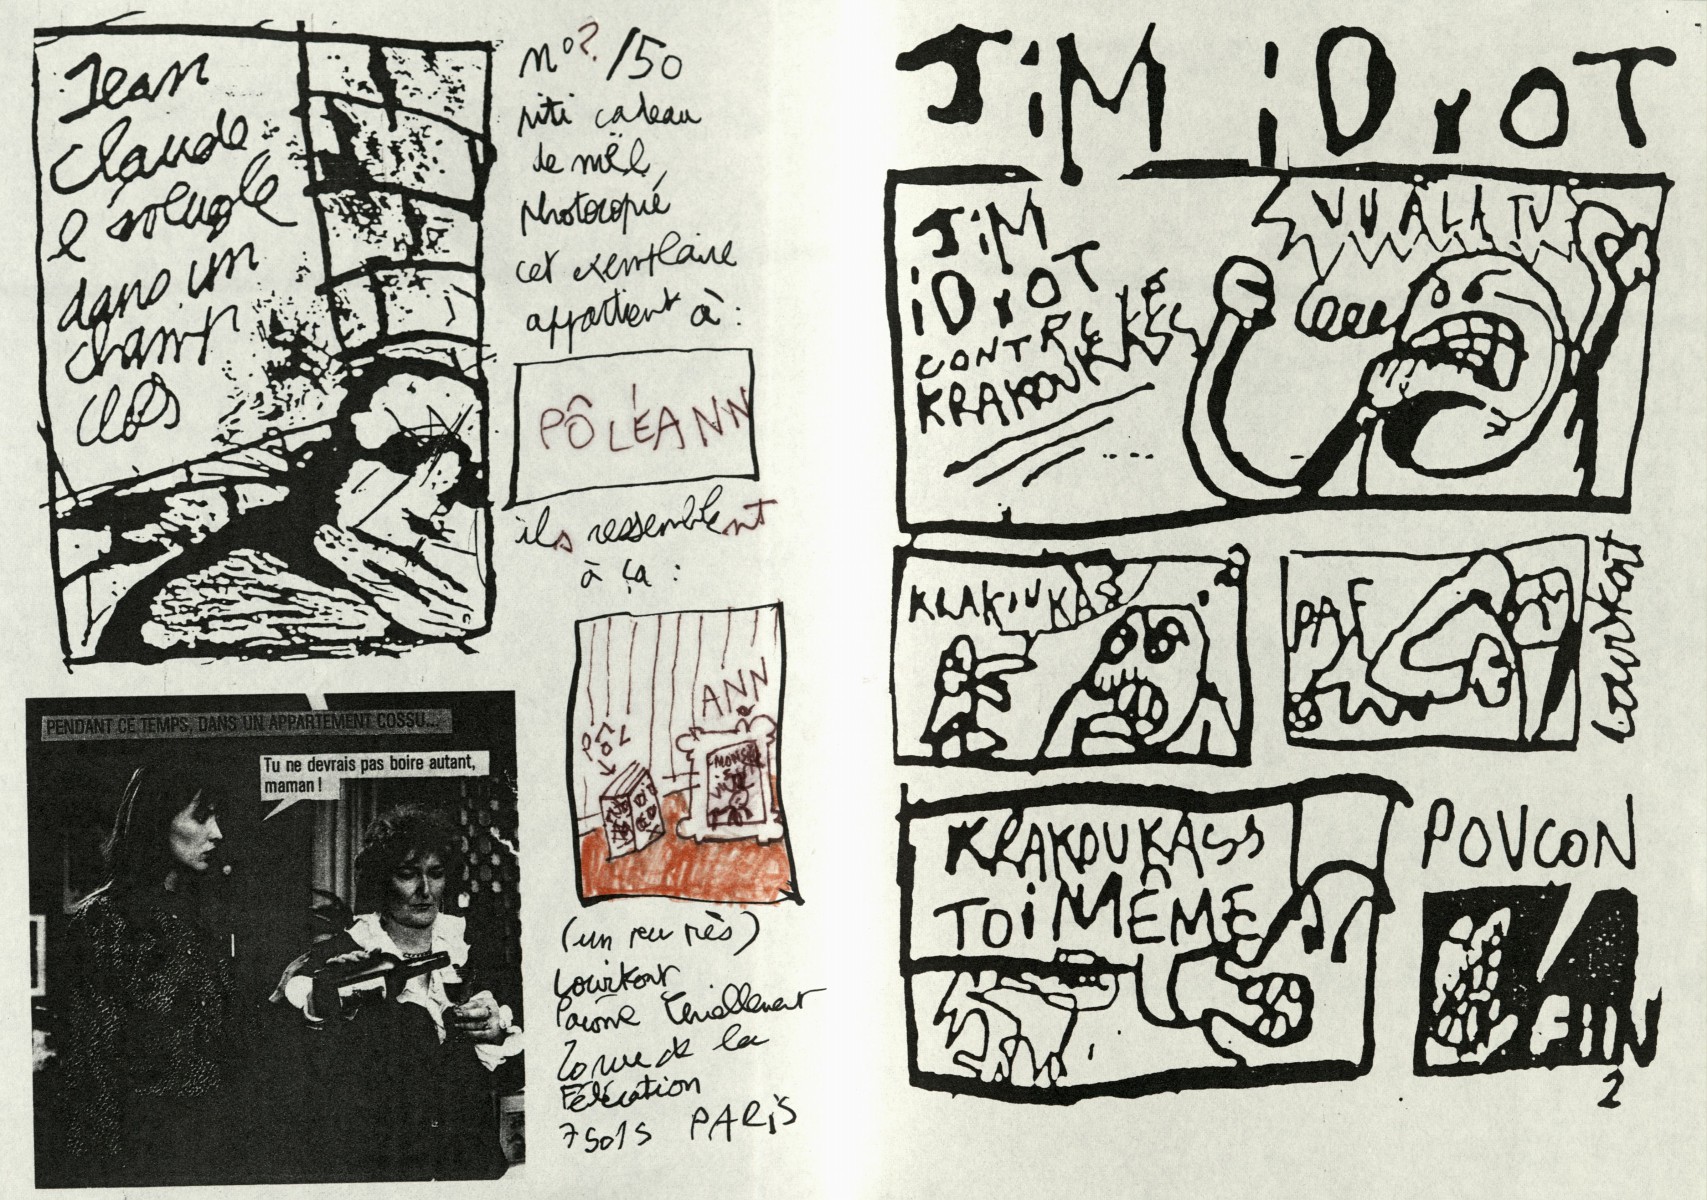 Jean
Claude
dans un
champ
clos
n°?/50
piti cadeau
de mël
photocopié,
cet exemplaire
appartient à :
PÔLÉANN
ils ressemblent
à ça :
PÔL
ANN
(un peu près)
Lowrkort
20 rue de la
Fédération
75015 PARIS
PENDANT CE TEMPS, DANS UN APPARTEMENT COSSU...
Tu ne devrais pas boire autant,
maman !
JiM iDyOT
JiM
iDyOT
CONTRE LES
VUALATU
KRAKOUKASS
PAF
KRAKOUKASS
TOiMÊME
POVCON
FIIN
2